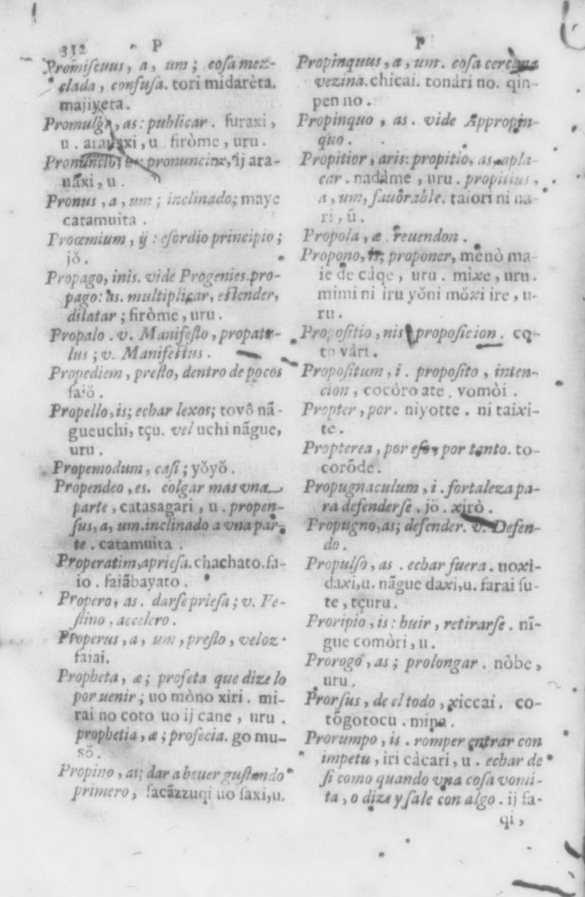 332 P
Promiscuus, a, um; cosa mez-
clada, confusa. tori midarèta.
majiyeta.
Promulgo, as: publicar. furaxi,
u. arauaxi, u firòme, uru.
pronunciar, ij ara-
uãxi, u.
Pronus, a, um; inclinado; maye
catamuita.
Prooemium, ij: esordio principio;
jŏ.
Propago, inis. vide Progenies. pro-
pago: as. multiplicar, estender,
dilatar; firòme, uru.
Propalo. v. Manifesto, propatu-
lus; v. Manifestus.
Propediem, presto, dentro de pocos
faiŏ.
Propello, is; echar lexos; tovŏ nã-
gueuchi, tçu. vel uchi nãgue,
uru.
Propemodum, casi; yŏyŏ.
Propendeo, es. colgar mas vna
parte, catasagari, u. propen-
sus, a, um. inclinado a vna par-
te. catamuita.
Properatim, apriesa. chachato. sa-
io. saiãbayato.
Propero, as. darse priesa; v. Fe-
stino, accelero.
Properus, a, um, presto, veloz.
faiai.
Propheta, æ; profeta que dize lo
por uenir; uo mòno xiri. mi-
rai no coto uo ij cane, uru.
prophetia, æ; profecia. go mu-
sŏ.
Propino, as; dar a beuer gustando
primero, sacãzzuqi uo saxi, u.
P
Propinquus, a, um. cosa cercana
vezina. chicai. tonàri no. qin-
pen no.
Propinquo, as. vide Appropin-
quo.
Propitior, aris: propitio, as, apla-
car. nadàme, uru. propitius,
a, um, fauorable. taiori ni na-
ri, ũ.
Propola, æ. reuendon.
Propono, is; proponer, mèno ma-
ie de càqe, uru. mixe, uru.
mimi ni iru yŏni mŏxi ire, u-
ru.
Propositio, nis proposicion. co-
to vàri.
Propositum, i. proposito, inten-
cion, cocòro ate. vomòi.
Propter, por. niyotte. ni taixi-
te.
Propterea, por eso, por tanto. to-
coròde.
Propugnaculum, i. fortaleza pa-
ra defenderse. jŏ. xirò.
Propugno, as; defender. v. Defen-
do.
Propulso, as. echar fuera. uoxi-
daxi, u. nãgue daxi, u. farai su-
te, tçuru.
Proripio, is: huir, retirarse. nĩ-
gue comòri, u.
Prorogo, as; prolongar. nòbe,
uru.
Prorsus, de el todo, xiccai. co-
tŏgotocu. mina.
Prorumpo, is. romper entrar con
impetu, iri càcari, u. echar de
si como quando vna cosa vomi-
ta, o dize y sale con algo. ij sa-
qi,